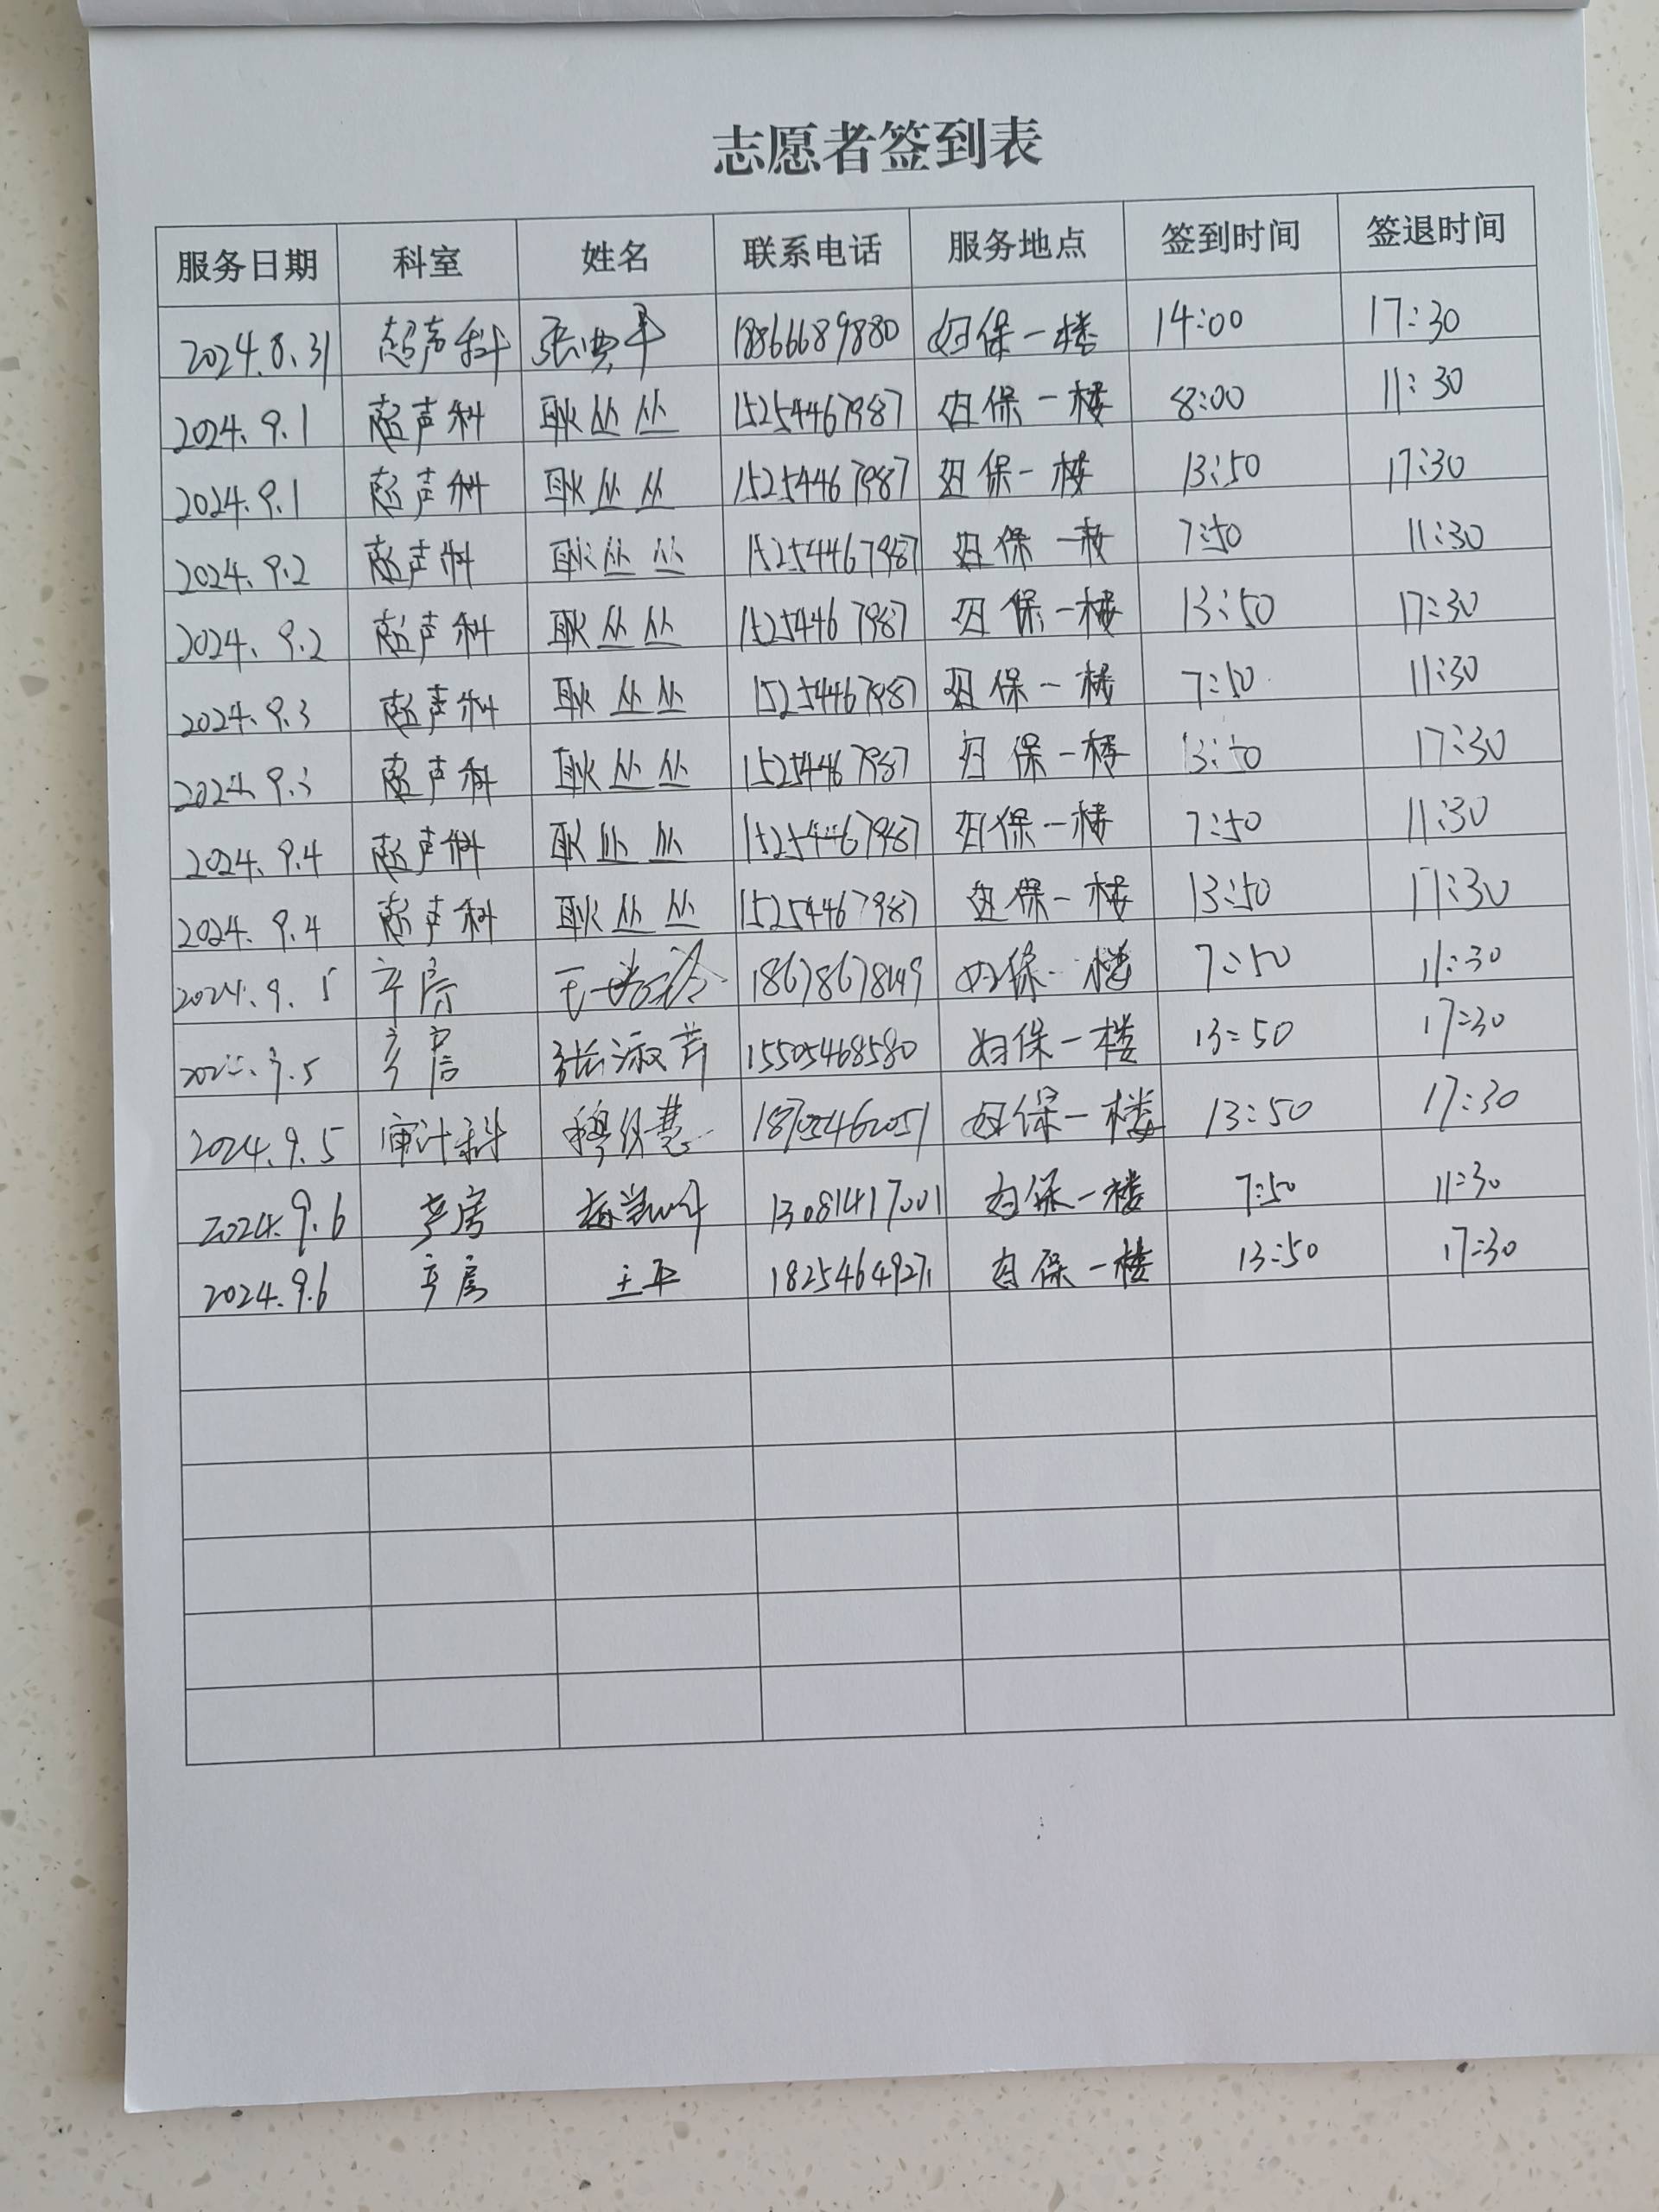 志愿者签到表
服务日期 科室 姓名 联系电话 服务地点 签到时间 签退时间
2024.8.31 超声科 18866689880 妇保一楼 14:00 17:30
2024.9.1 超声科 耿丛丛 15254467987 妇保一楼 8:00 11:30
2024.9.1 超声科 耿丛丛 15254467987 妇保一楼 13:50 17:30
2024.9.2 超声科 耿丛丛 15254467987 妇保一楼 7:50 11:30
2024.9.2 超声科 耿丛丛 15254467987 妇保一楼 13:50 17:30
2024.9.3 超声科 耿丛丛 15254467987 妇保一楼 7:50 11:30
2024.9.3 超声科 耿丛丛 15254467987 妇保一楼 13:50 17:30
2024.9.4 超声科 耿丛丛 15254467987 妇保一楼 7:50 11:30
2024.9.4 超声科 耿丛丛 15254467987 妇保一楼 13:50 17:30
2024.9.5 产房 妇保一楼 7:50 11:30
9.5 产房 张淑芹 15505468580 妇保一楼 13:50 17:30
2024.9.5 审计科 妇保一楼 13:50 17:30
2024.9.6 产房 13081417001 妇保一楼 7:50 11:30
2024.9.6 产房 王平 18254649271 妇保一楼 13:50 17:30